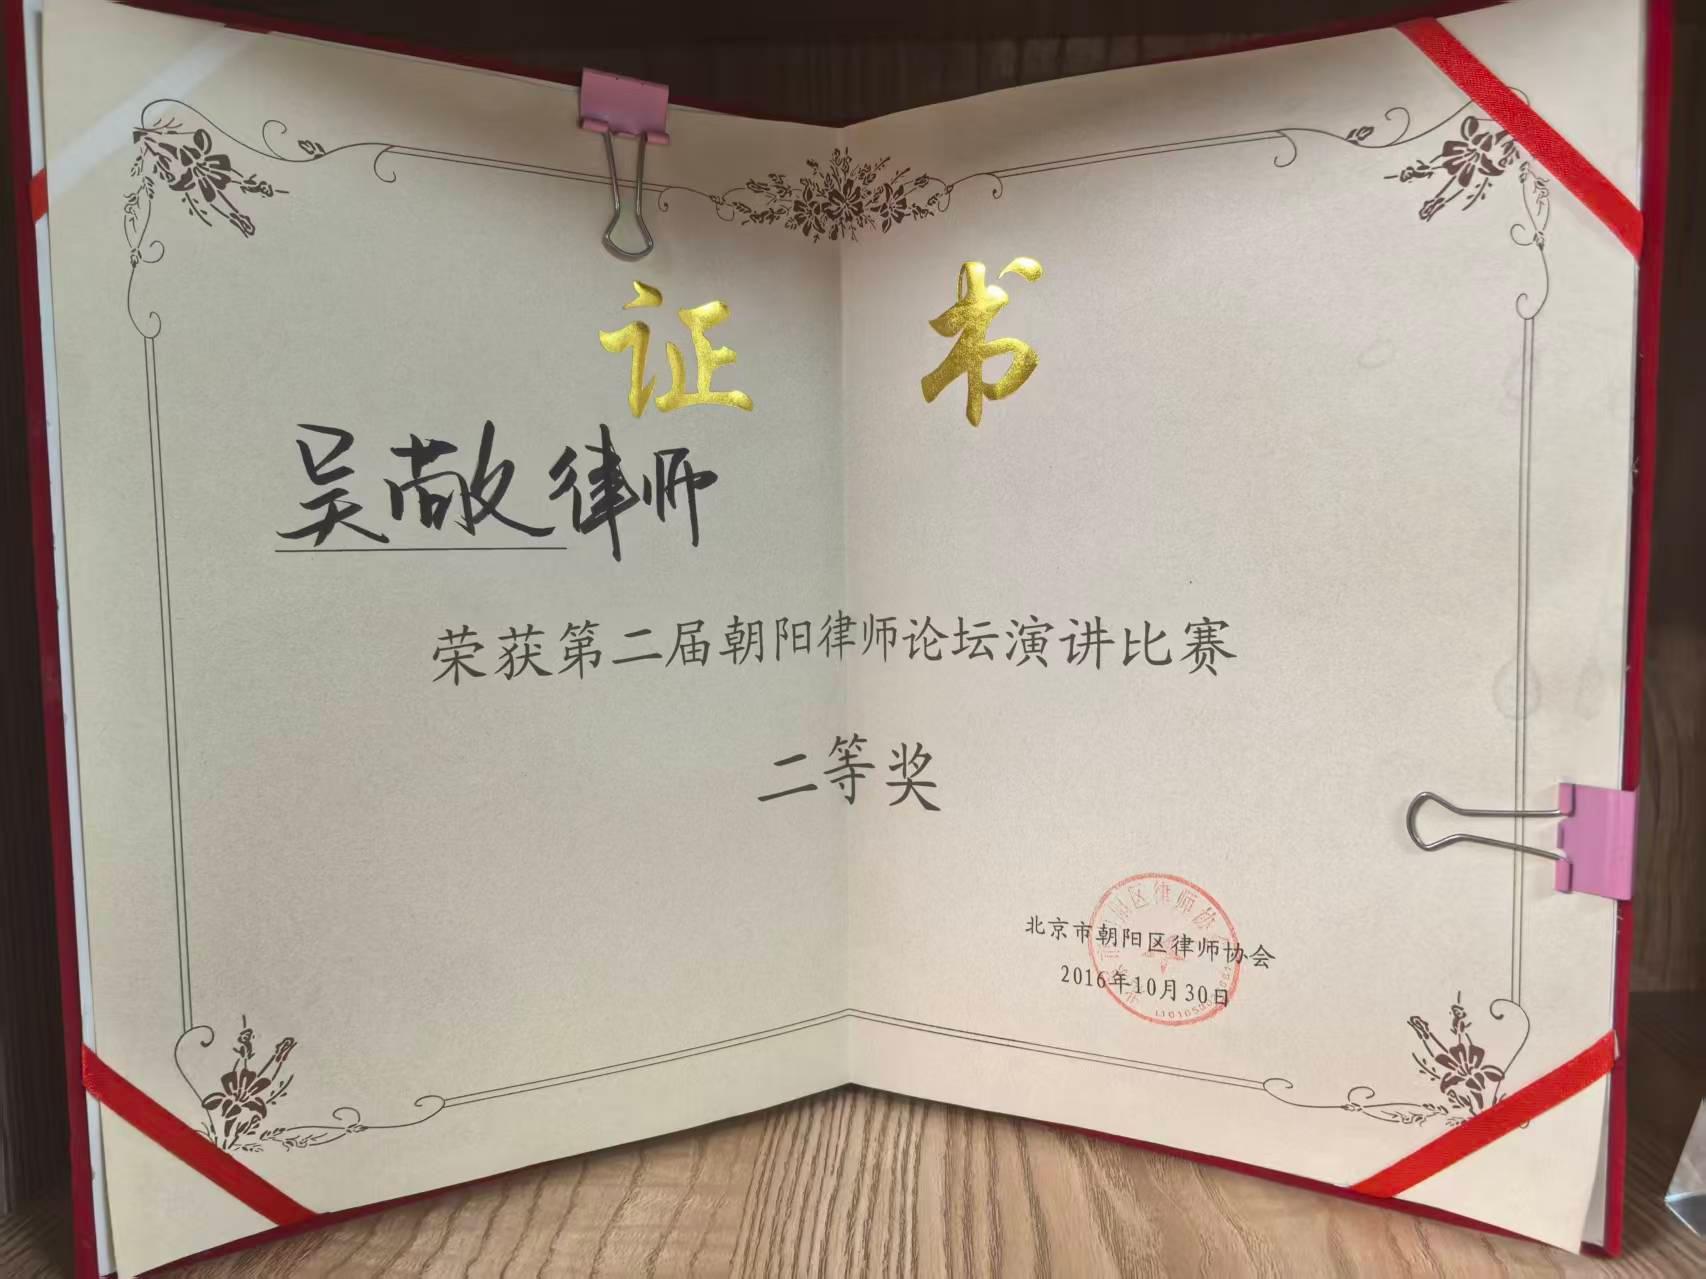 证 书
吴敬律师
荣获第二届朝阳律师论坛演讲比赛
二等奖
北京市朝阳区律师协会
2016年10月30日